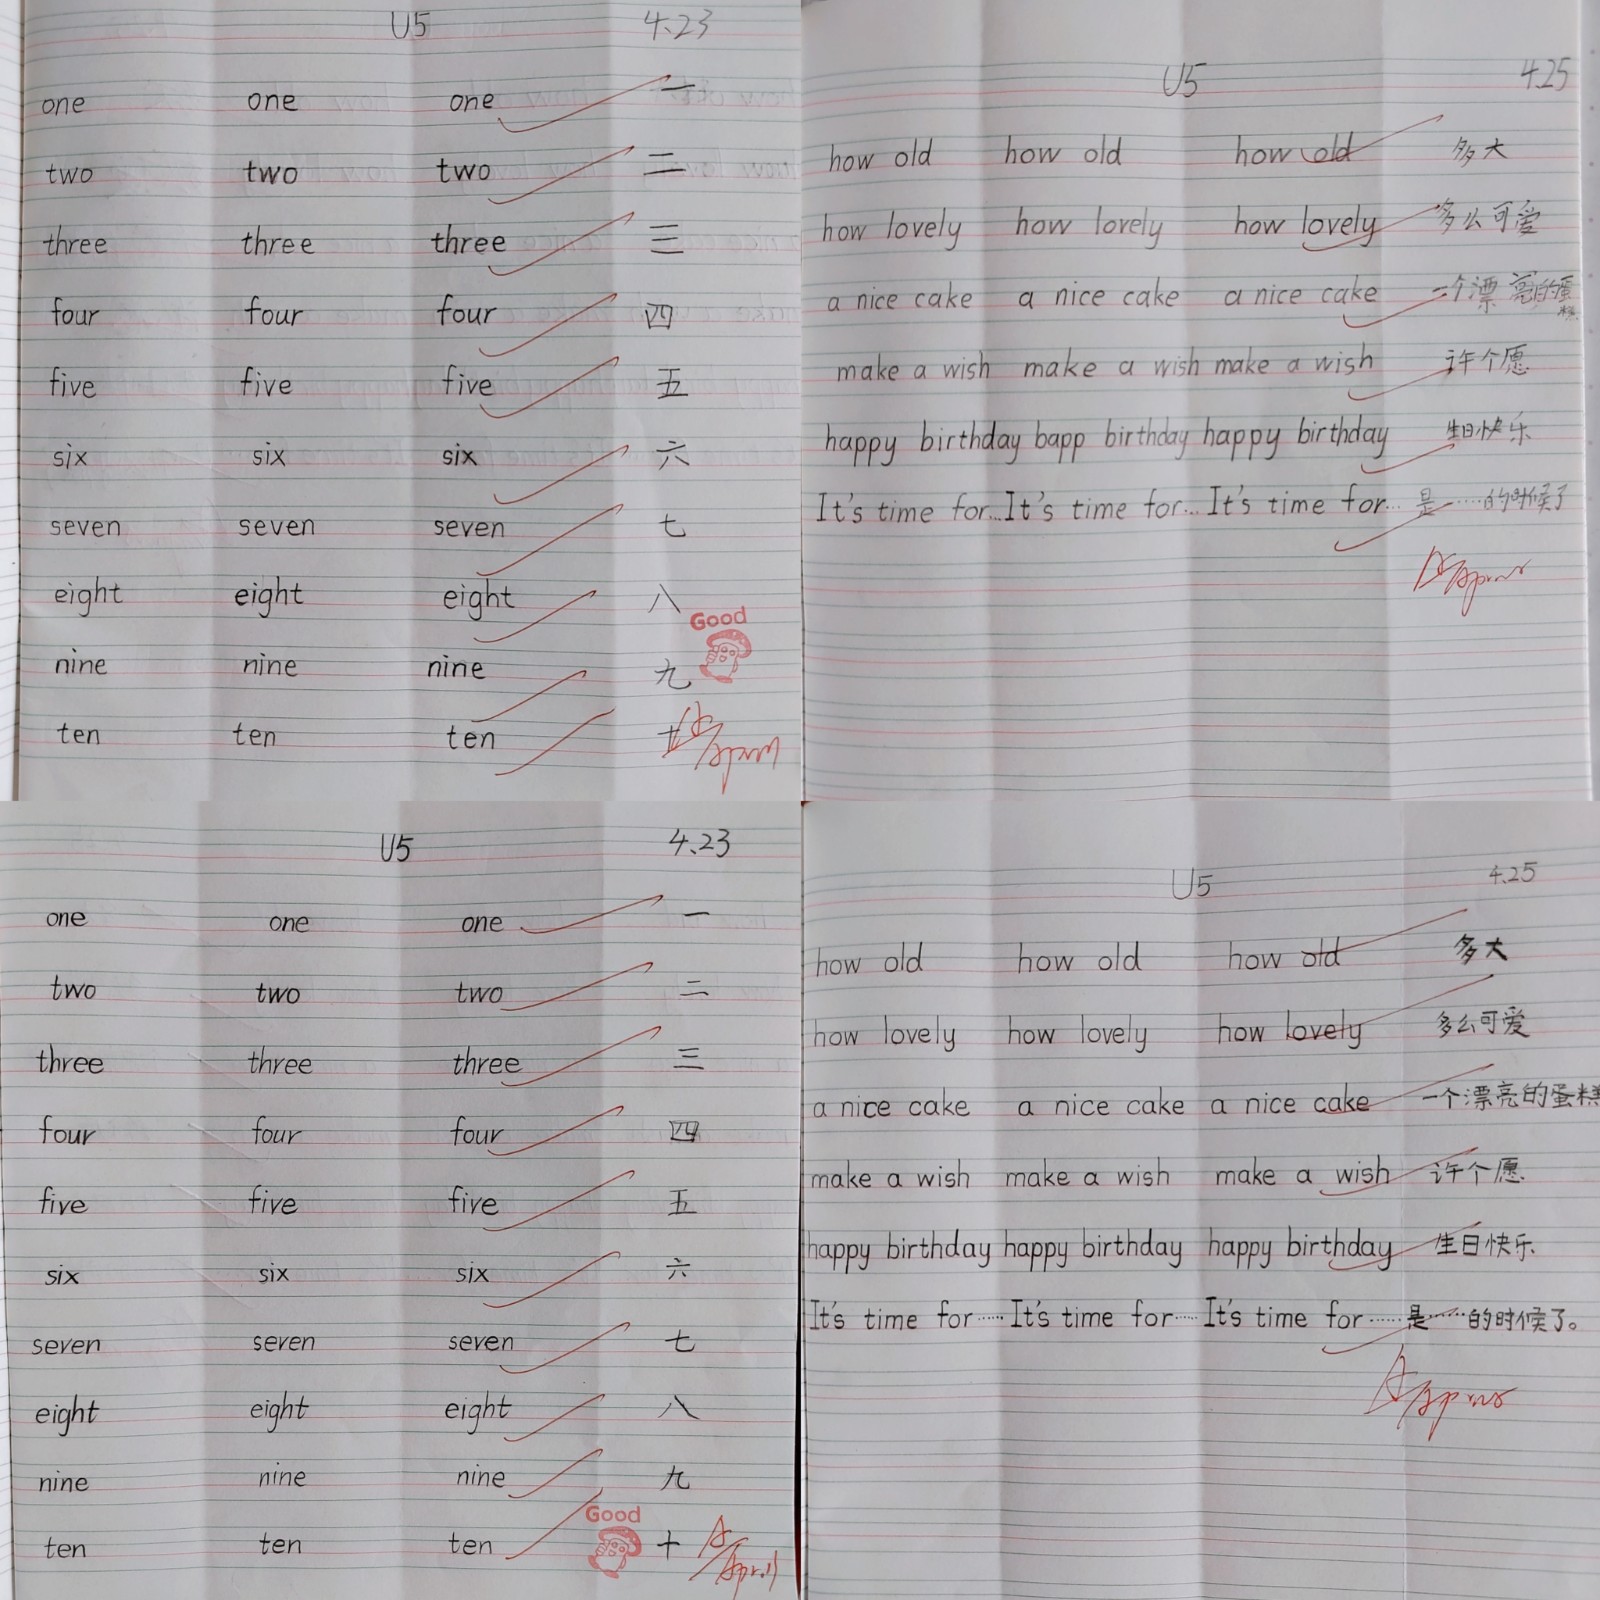 U5 4.23
one one one 一
two two two 二
three three three 三
four four four 四
five five five 五
six six six 六
seven seven seven 七
eight eight eight 八
Good
nine nine nine 九
ten ten ten 十
U5 4.25
how old how old how old 多大
how lovely how lovely how lovely 多么可爱
a nice cake a nice cake a nice cake 一个漂亮的蛋糕
make a wish make a wish make a wish 许个愿
happy birthday bapp birthday happy birthday 生日快乐
It's time for... It's time for... It's time for... 是……的时候了
U5 4.23
one one one 一
two two two 二
three three three 三
four four four 四
five five five 五
six six six 六
seven seven seven 七
eight eight eight 八
nine nine nine 九
Good
ten ten ten 十
U5 4.25
how old how old how old 多大
how lovely how lovely how lovely 多么可爱
a nice cake a nice cake a nice cake 一个漂亮的蛋糕
make a wish make a wish make a wish 许个愿
happy birthday happy birthday happy birthday 生日快乐
It's time for…… It's time for…… It's time for…… 是……的时候了。